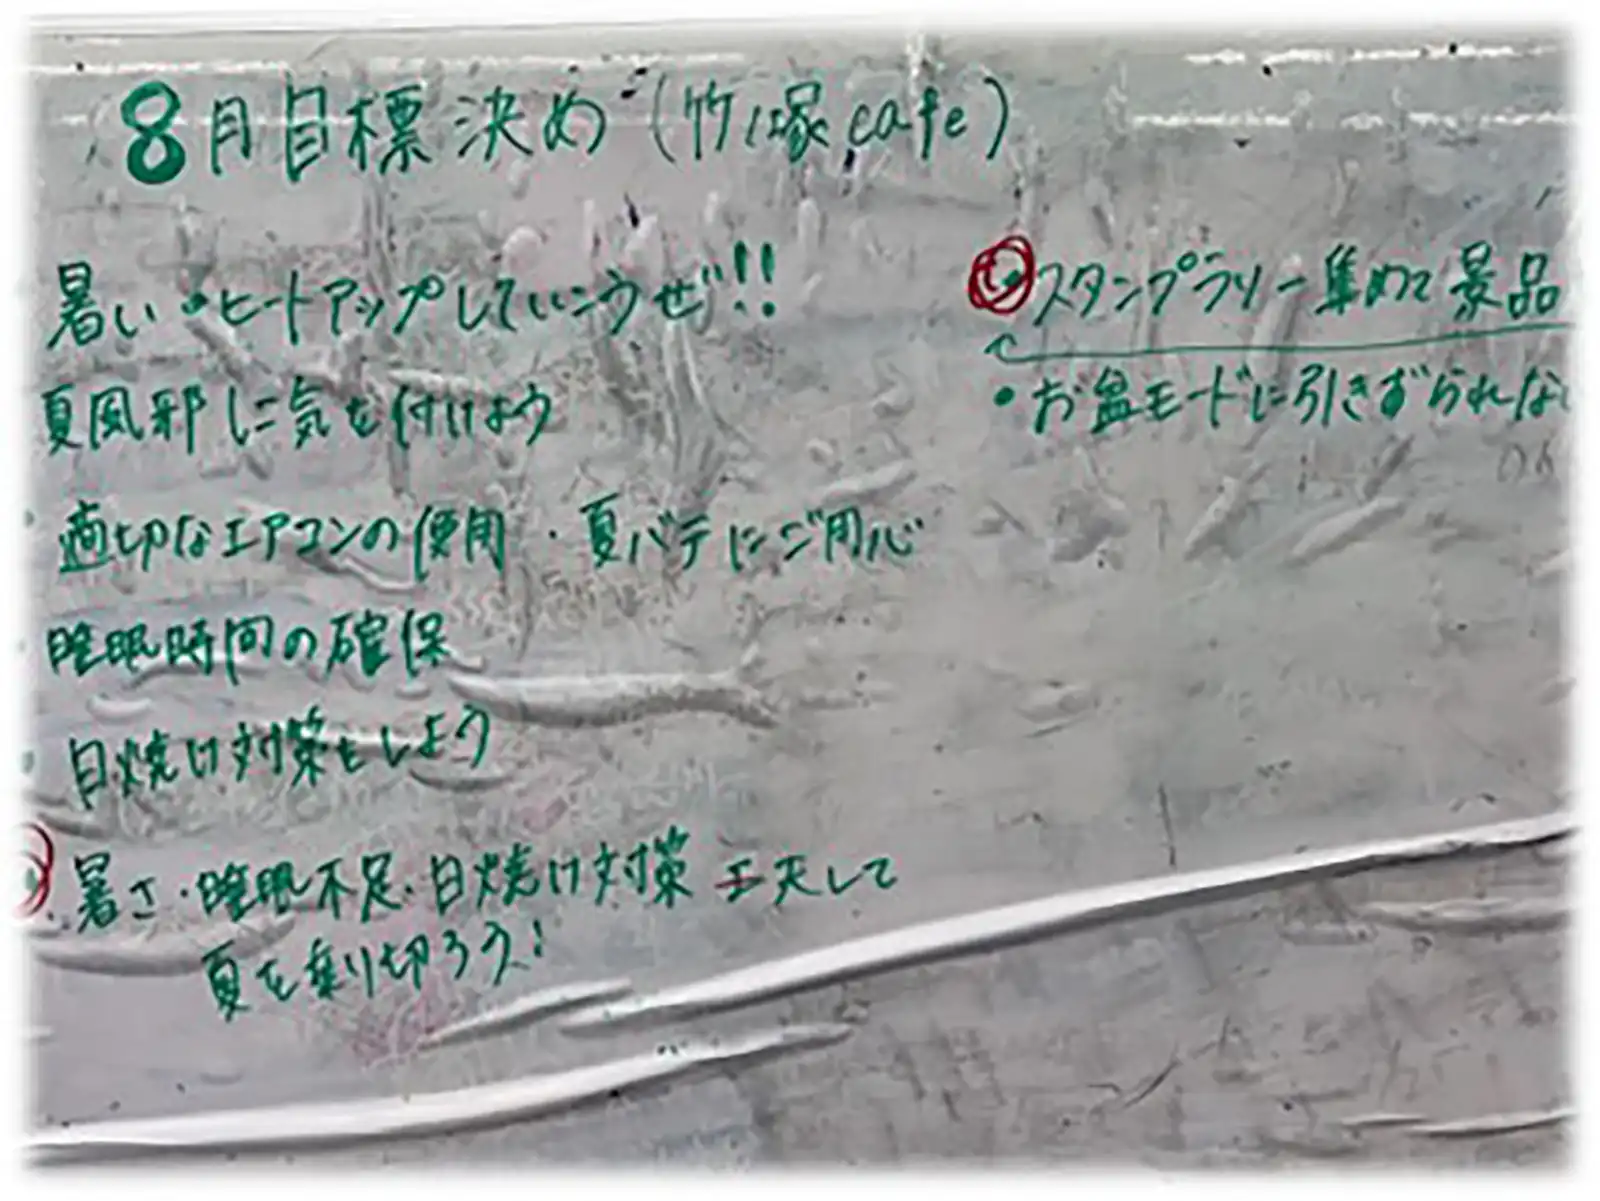 8月目標決め(竹ノ塚cafe)
暑い・ヒートアップしていこうぜ!!
夏風邪に気を付けよう
適切なエアコンの使用 ・夏バテにご用心
睡眠時間の確保
日焼け対策をしよう
暑さ・睡眠不足・日焼け対策 工夫して
夏を乗り切ろう!
スタンプラリー集めて景品
・お盆モードに引きずられない